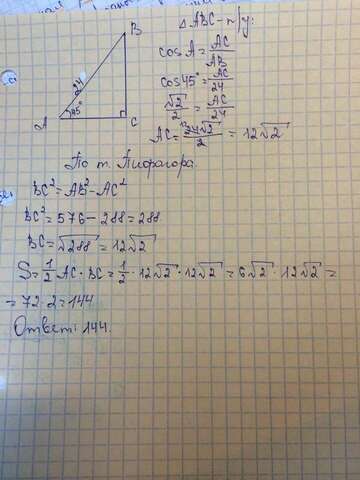 B
24
45°
A
C
△ABC - п/у:
cos A = AC/AB
cos 45° = AC/24
√2/2 = AC/24
AC = 24√2/2 = 12√2
По т. Пифагора:
BC² = AB² - AC²
BC² = 576 - 288 = 288
BC = √288 = 12√2
S = 1/2 AC · BC = 1/2 · 12√2 · 12√2 = 6√2 · 12√2 =
= 72 · 2 = 144
Ответ: 144.